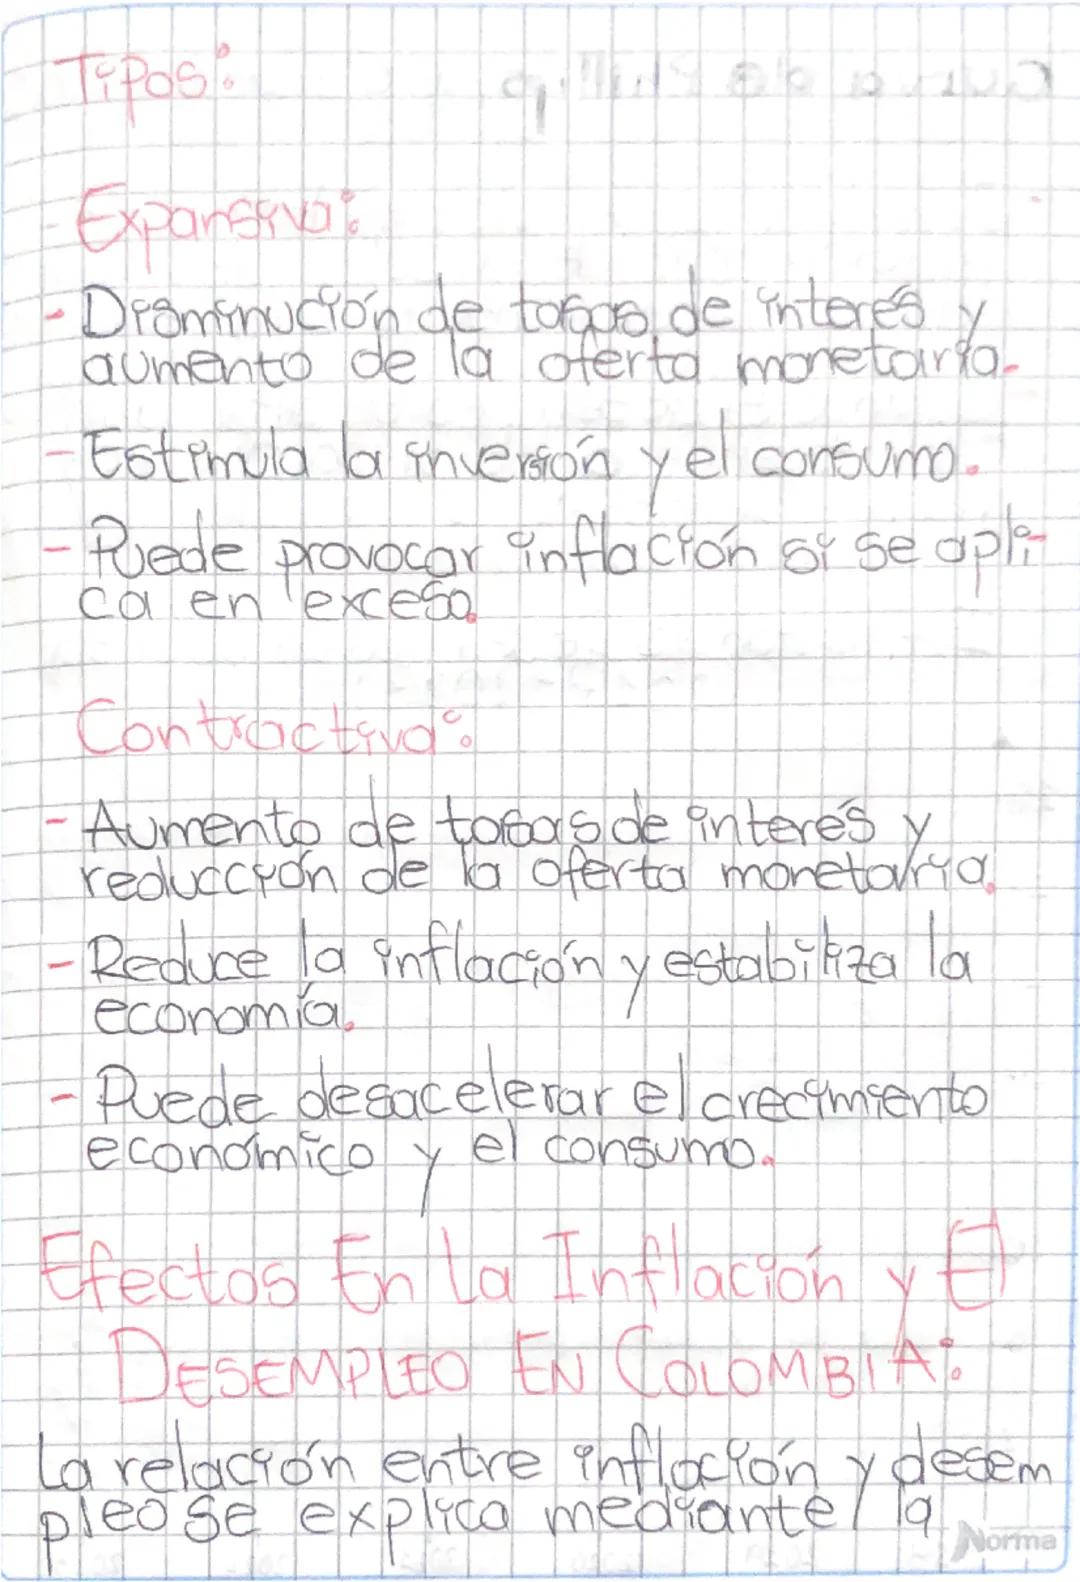 Tipos:
Expansiva:
- Disminución de tasas de interés y
aumento de la oferta monetaria.
- Estimula la inversión y el consumo.
- Puede provocar inflación si se apli-
ca en exceso.
Contractiva:
- Aumento de tasas de interés y
reducción de la oferta monetaria.
- Reduce la inflación y estabiliza la
economía.
- Puede desacelerar el crecimiento
económico y el consumo.
Efectos En La Inflación y El
DESEMPLEO EN COLOMBIA:
La relación entre inflación y desem
pleo se explica mediante la
Norma